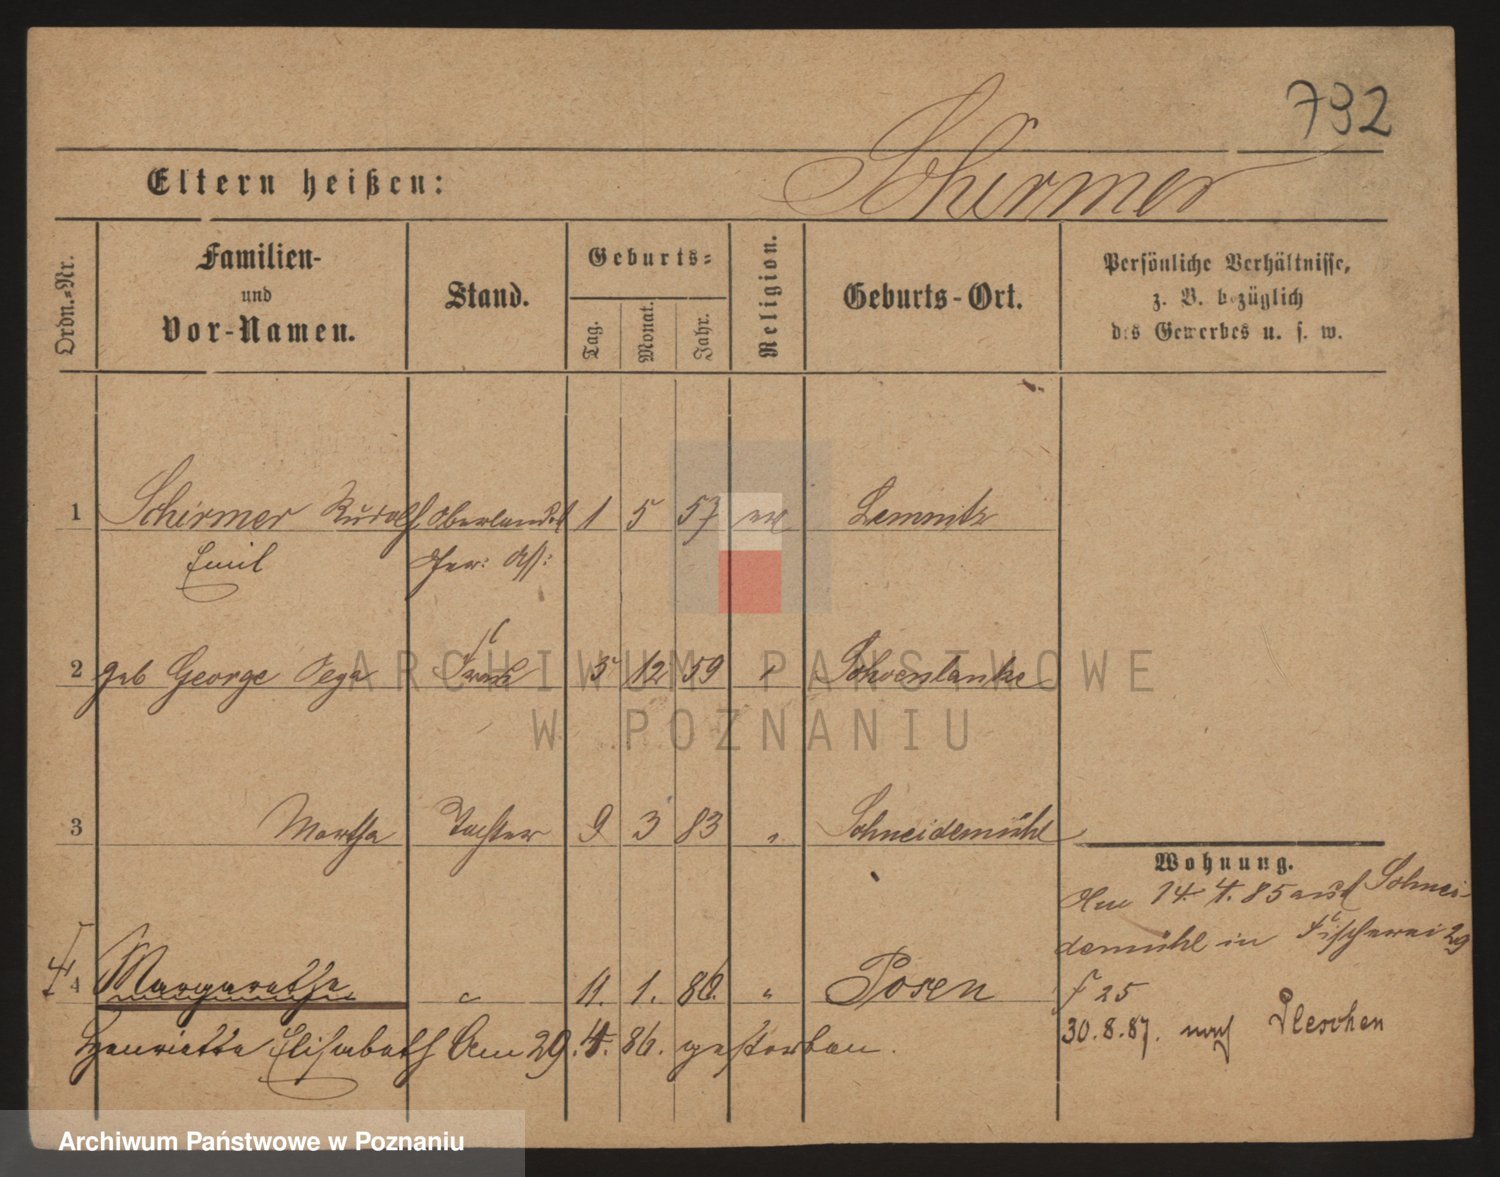 732
Eltern heißen: Schirmer
Ordn.-Nr.
Familien-
und
Vor-Namen.
Stand.
Geburts-
Tag.
Monat.
Jahr.
Religion.
Geburts-Ort.
Persönliche Verhältnisse,
z. B. bezüglich
des Gewerbes u. s. w.
1 Schirmer Rudolf Oberlandes 1 5 57 ev Lemnitz
Emil Ger: Ass:
2 geb George Frau 5 12 59 " Schoenlanke
3 Martha Tochter 9 3 83 " Schneidemühl
Wohnung.
14. 4. 85 aus Schnei-
demühl in Fischerei 29
4 Margarethe " 11. 1. 86. " Posen
25
Henriette Elisabeth Am 29. 4. 86. gestorben.
30. 8. 87. nach Pleschen
ARCHIWUM PAŃSTWOWE
W POZNANIU
Archiwum Państwowe w Poznaniu